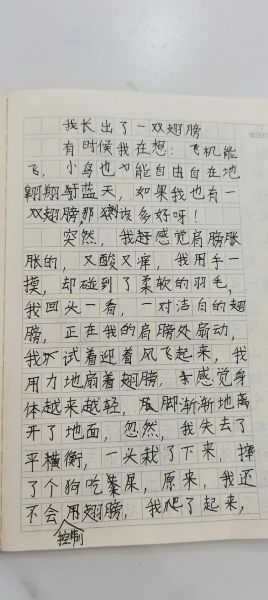 我长出了一双翅膀
有时候我在想：飞机能
飞，小鸟也能自由自在地
翱翔于蓝天，如果我也有一
双翅膀，那该多好呀！
突然，我感觉肩膀胀
胀的，又酸又痒，我用手一
摸，却碰到了柔软的羽毛，
我回头一看，一对洁白的翅
膀，正在我的肩膀处扇动，
我试着迎着风飞起来，我
用力地扇着翅膀，感觉身
体越来越轻，脚渐渐地离
开了地面，忽然，我失去了
平衡，一头栽了下来，摔
了个狗吃粪屎，原来，我还
不会用翅膀，我爬了起来，
控制